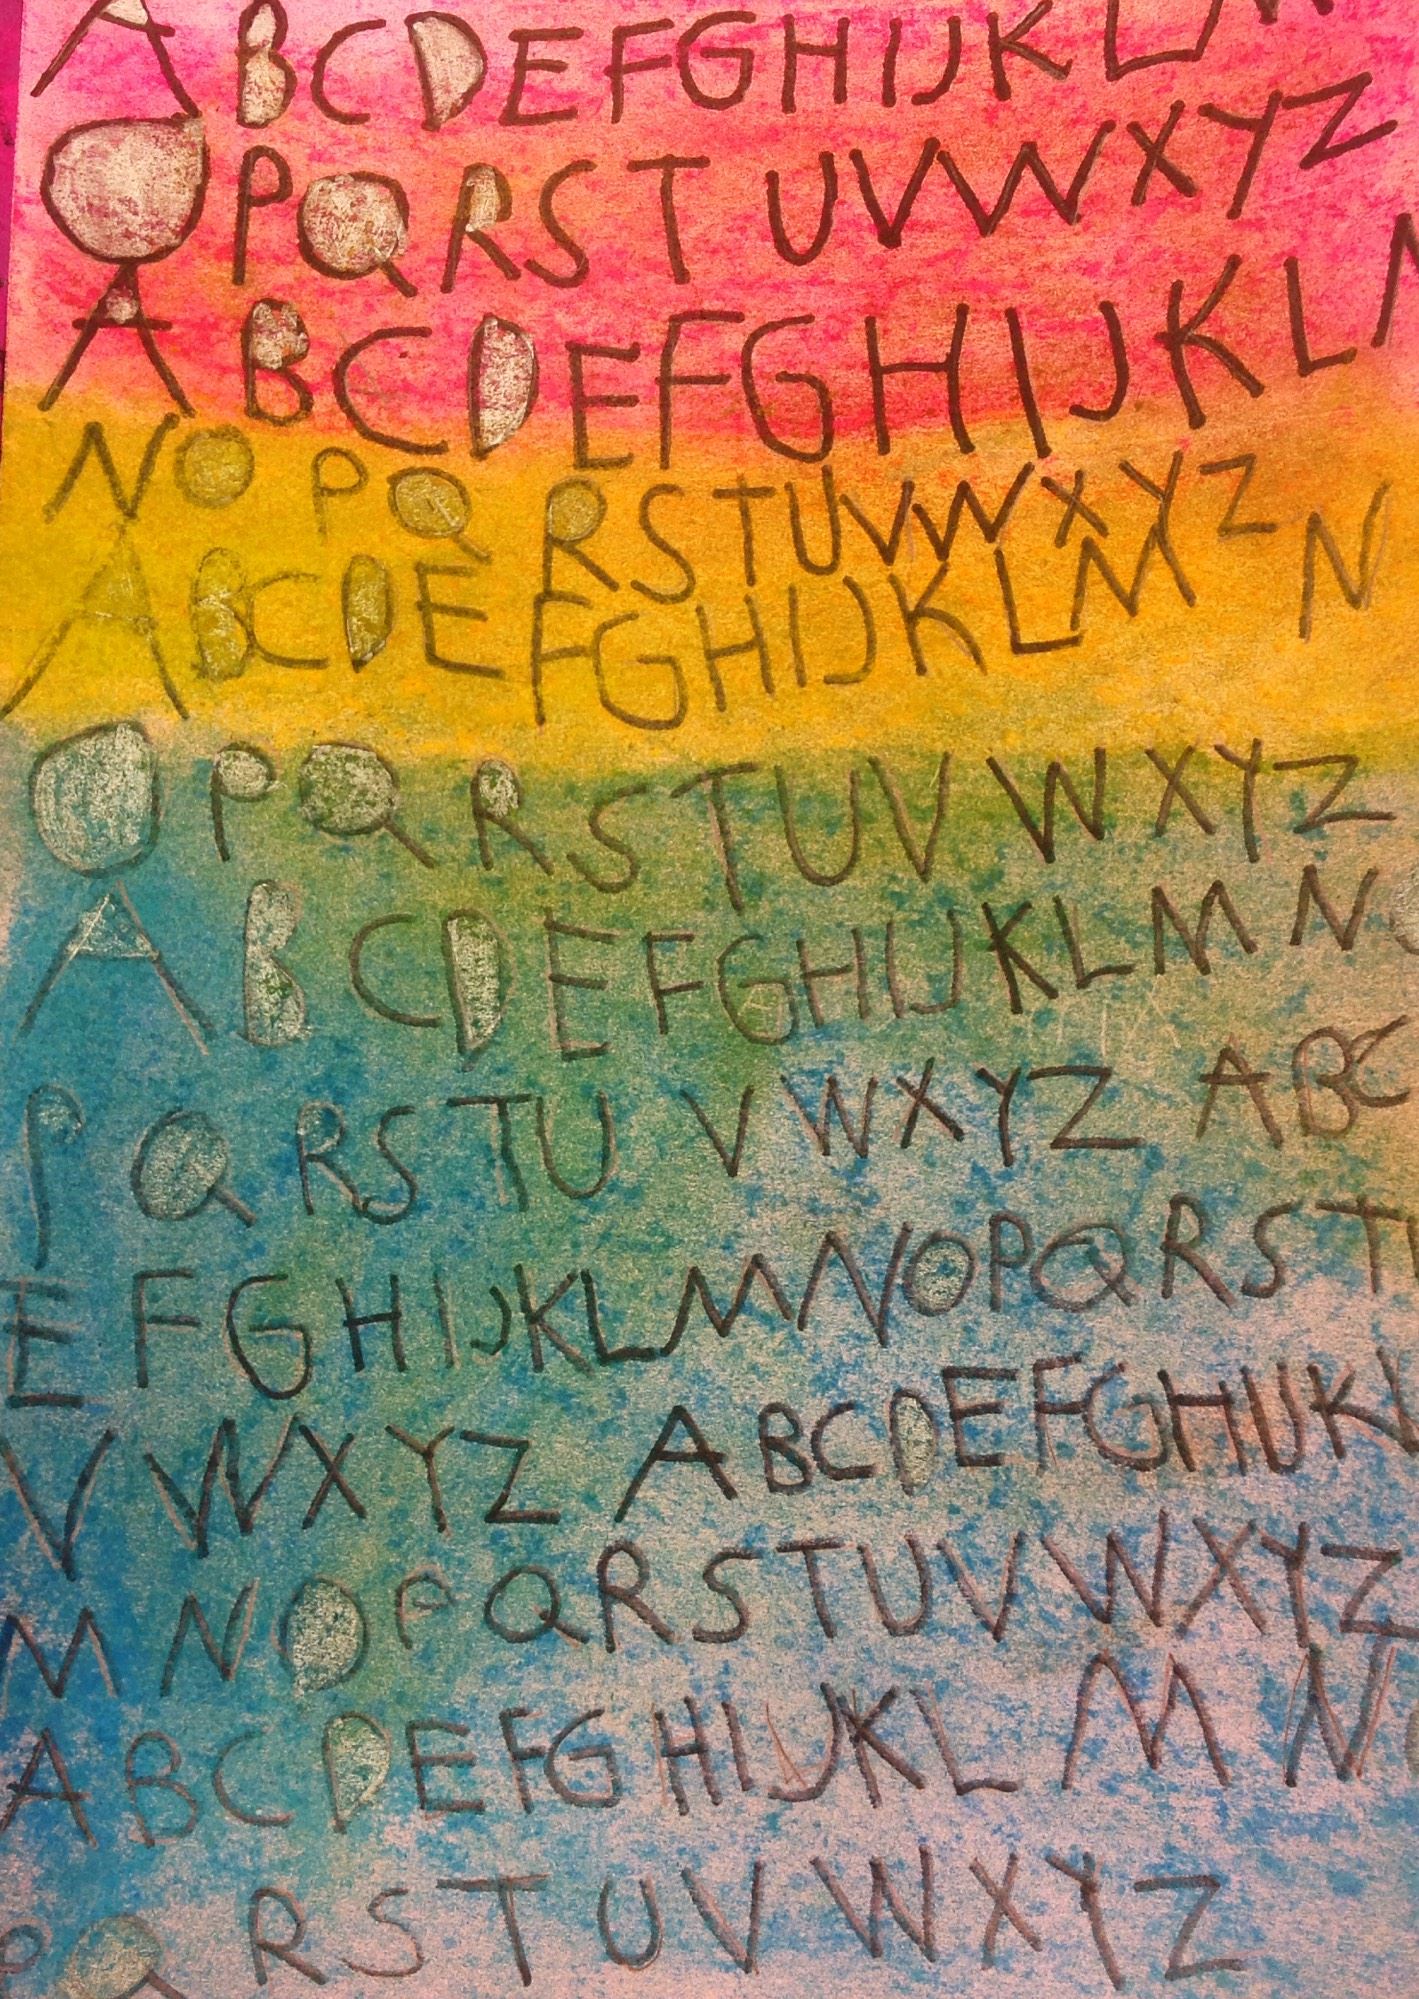 ABCDEFGHIJKLM
OPQRSTUVWXYZ
ABCDEFGHIJKL
NOPQRSTUVWXYZ
ABCDEFGHIJKLM N
OPQRSTUVWXYZ
ABCDEFGHIJKLMN
PQRSTUVWXYZ ABC
EFGHIJKLMNOPQRST
VWXYZ ABCDEFGHIJK
MNOPQRSTUVWXYZ
ABCDEFGHIJKLMN
PQRSTUVWXYZ